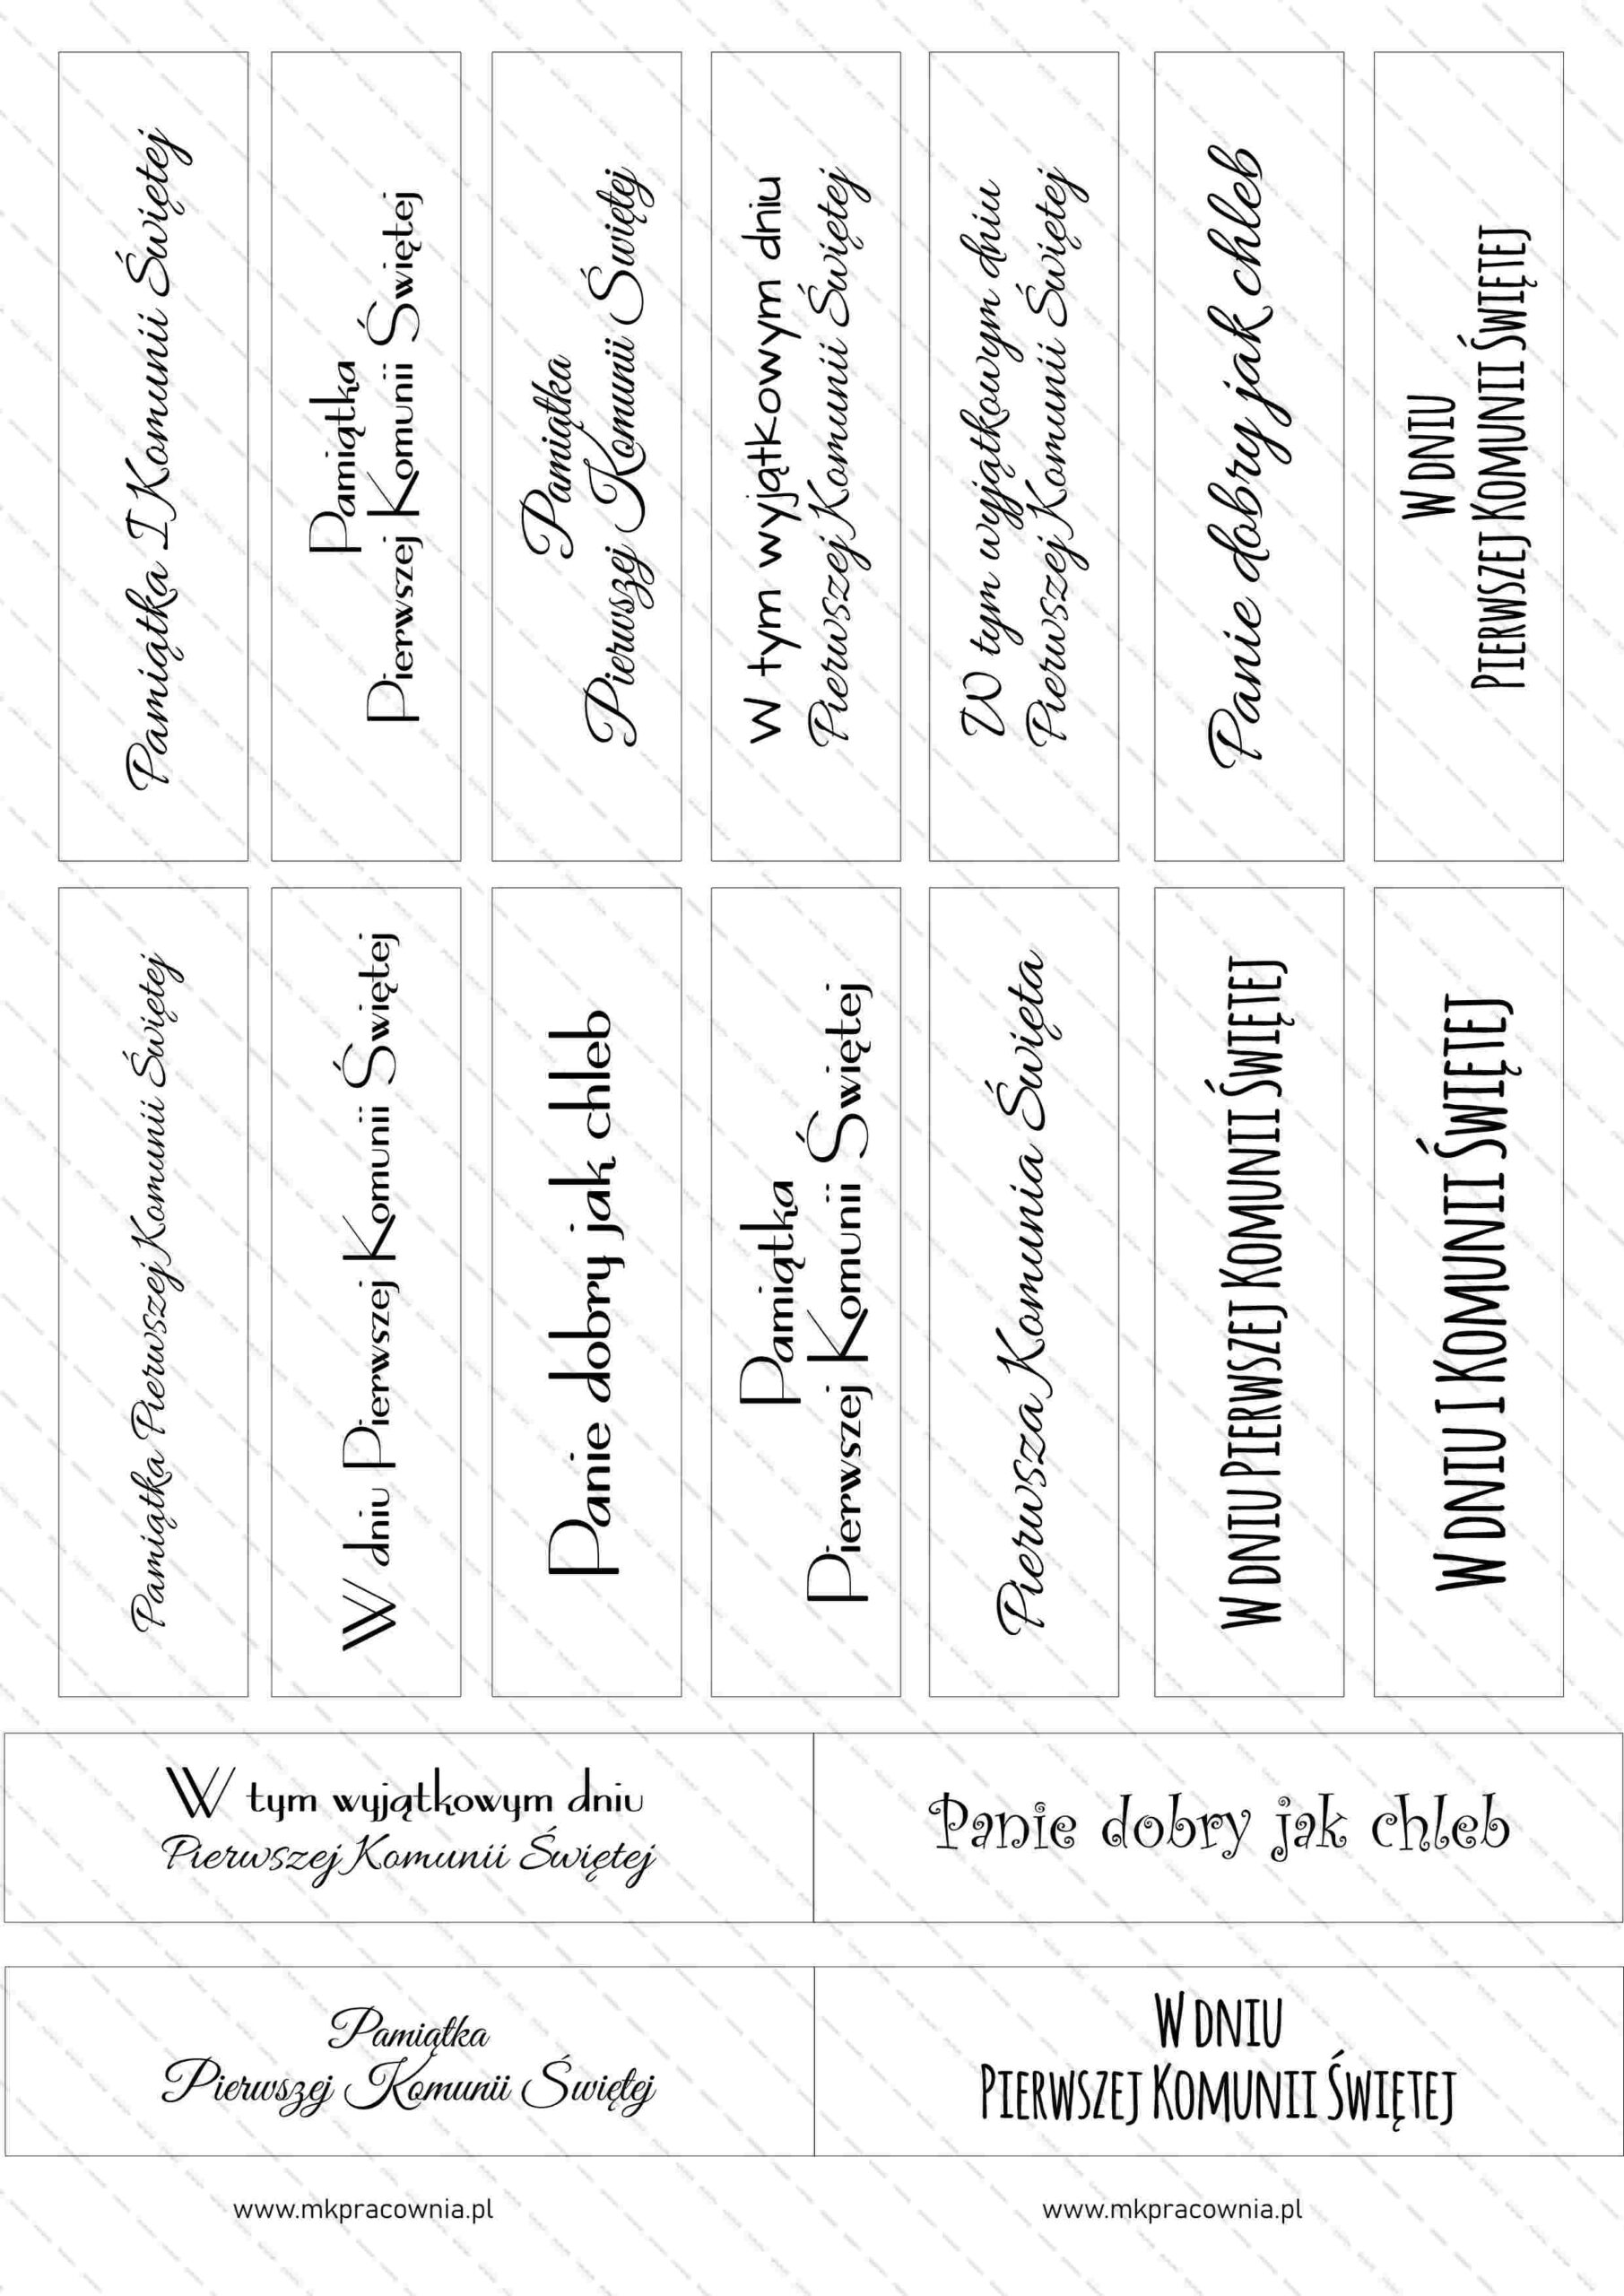 Pamiątka I Komunii Świętej
Pamiątka
Pierwszej Komunii Świętej
Pamiątka
Pierwszej Komunii Świętej
W tym wyjątkowym dniu
Pierwszej Komunii Świętej
W tym wyjątkowym dniu
Pierwszej Komunii Świętej
Panie dobry jak chleb
W DNIU
PIERWSZEJ KOMUNII ŚWIĘTEJ
Pamiątka Pierwszej Komunii Świętej
W dniu Pierwszej Komunii Świętej
Panie dobry jak chleb
Pamiątka
Pierwszej Komunii Świętej
Pierwsza Komunia Święta
W DNIU PIERWSZEJ KOMUNII ŚWIĘTEJ
W DNIU I KOMUNII ŚWIĘTEJ
W tym wyjątkowym dniu
Pierwszej Komunii Świętej
Panie dobry jak chleb
Pamiątka
Pierwszej Komunii Świętej
W DNIU
PIERWSZEJ KOMUNII ŚWIĘTEJ
www.mkpracownia.pl
www.mkpracownia.pl